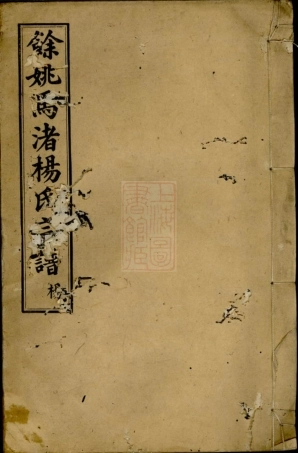 餘姚馬渚楊氏宗譜
上海圖書館藏